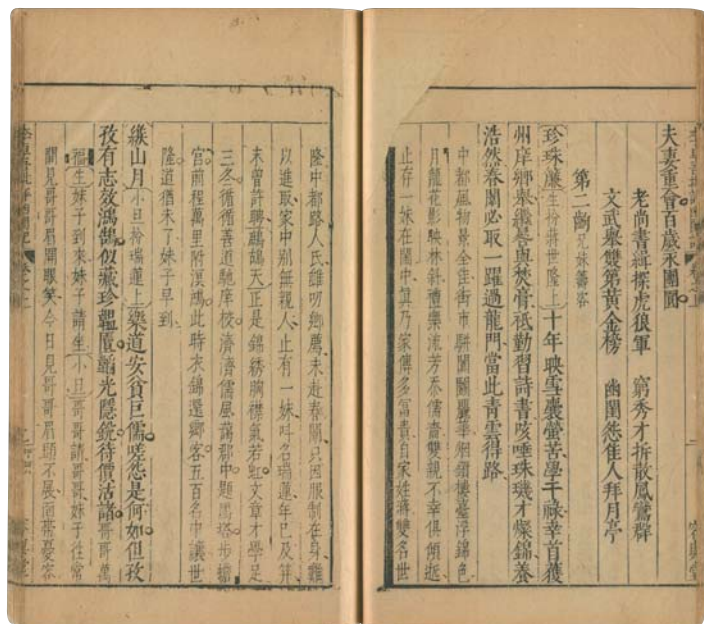 夫妻重會百歲永團圓
老尚書緝探虎狼軍　窮秀才拆散鳳鸞群
文武舉雙第黃金榜　幽閨怨佳人拜月亭
第二齣　兄妹籌客
珍珠簾　生扮蔣世隆上　十年映雪囊螢苦學干祿幸首獲
州庠鄉舉繼晷與焚膏祗勤習詩書咳唾珠璣才燦錦養
浩然春闈必取一躍過龍門當此青雲得路
中都風物景全佳街市駢闐鬬麗華烟鎖樓臺浮錦色
月籠花影映林斜禮樂流芳忝儒裔雙親不幸俱傾逝
止存一妹在閨中算乃家傳多富貴自家姓蔣雙名世
隆中都路人氏雖叨鄉薦未赴春闈只因服制在身難
以進取家中別無親人止有一妹叫名瑞蓮年已及笄
未曾許聘鷓鴣天正是錦綉胸襟氣若虹文章才學足
三冬循循善道馳庠校濟濟儒風藹郡中題墨塔步蟾
宮前程萬里附溟鴻此時衣錦還鄉客五百名中讓世
隆道猶未了妹子早到
緱山月　小旦扮瑞蓮上　樂道安貧巨儒嗟怨是何如但孜
孜有志效鴻鵠似藏珍韞匵韜光隱銳待價沽諸哥哥萬
福生妹子到來妹子請坐小旦哥哥請哥哥妹子往常
間見哥哥眉開眼笑今日見哥哥眉頭不展面帶憂容
容與堂